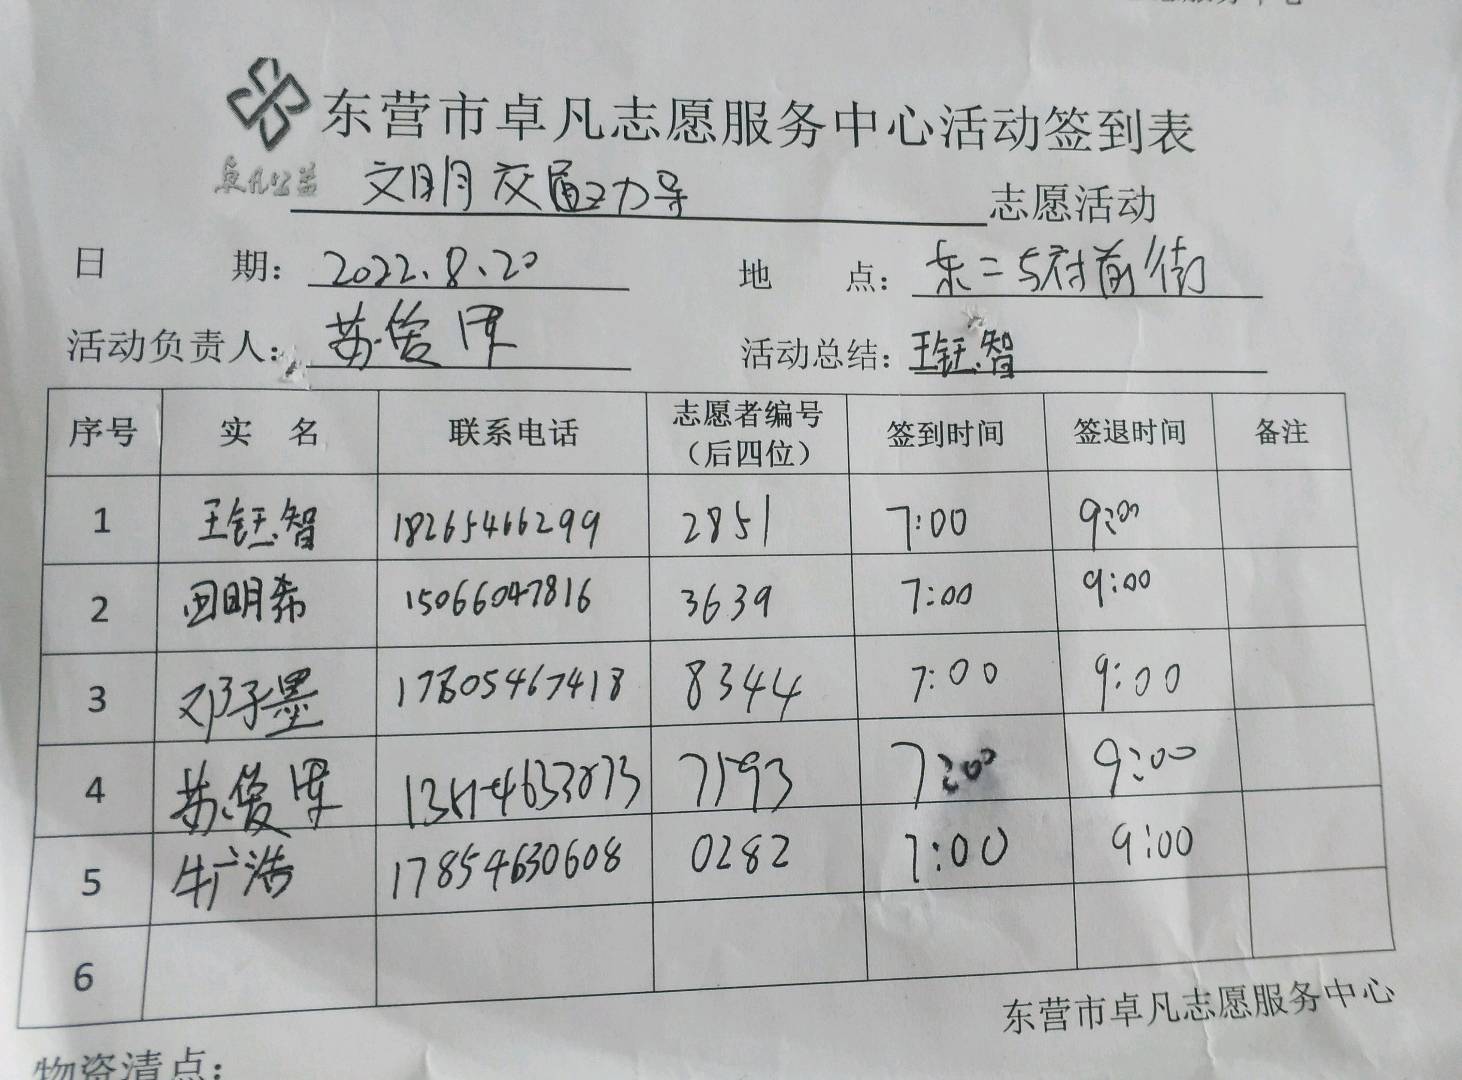 东营市卓凡志愿服务中心活动签到表
卓凡公益 文明交通劝导 志愿活动
日 期: 2022.8.20 地 点: 东二与府前街
活动负责人: 苏俊 活动总结: 王钰智
序号 实 名 联系电话 志愿者编号（后四位） 签到时间 签退时间 备注
1 王钰智 18265466299 2851 7:00 9:00
2 田明希 15066047816 3639 7:00 9:00
3 邓子墨 17805467418 8344 7:00 9:00
4 苏俊 7593 7:00 9:00
5 牛广浩 17854630608 0282 7:00 9:00
6
东营市卓凡志愿服务中心
物资清点: